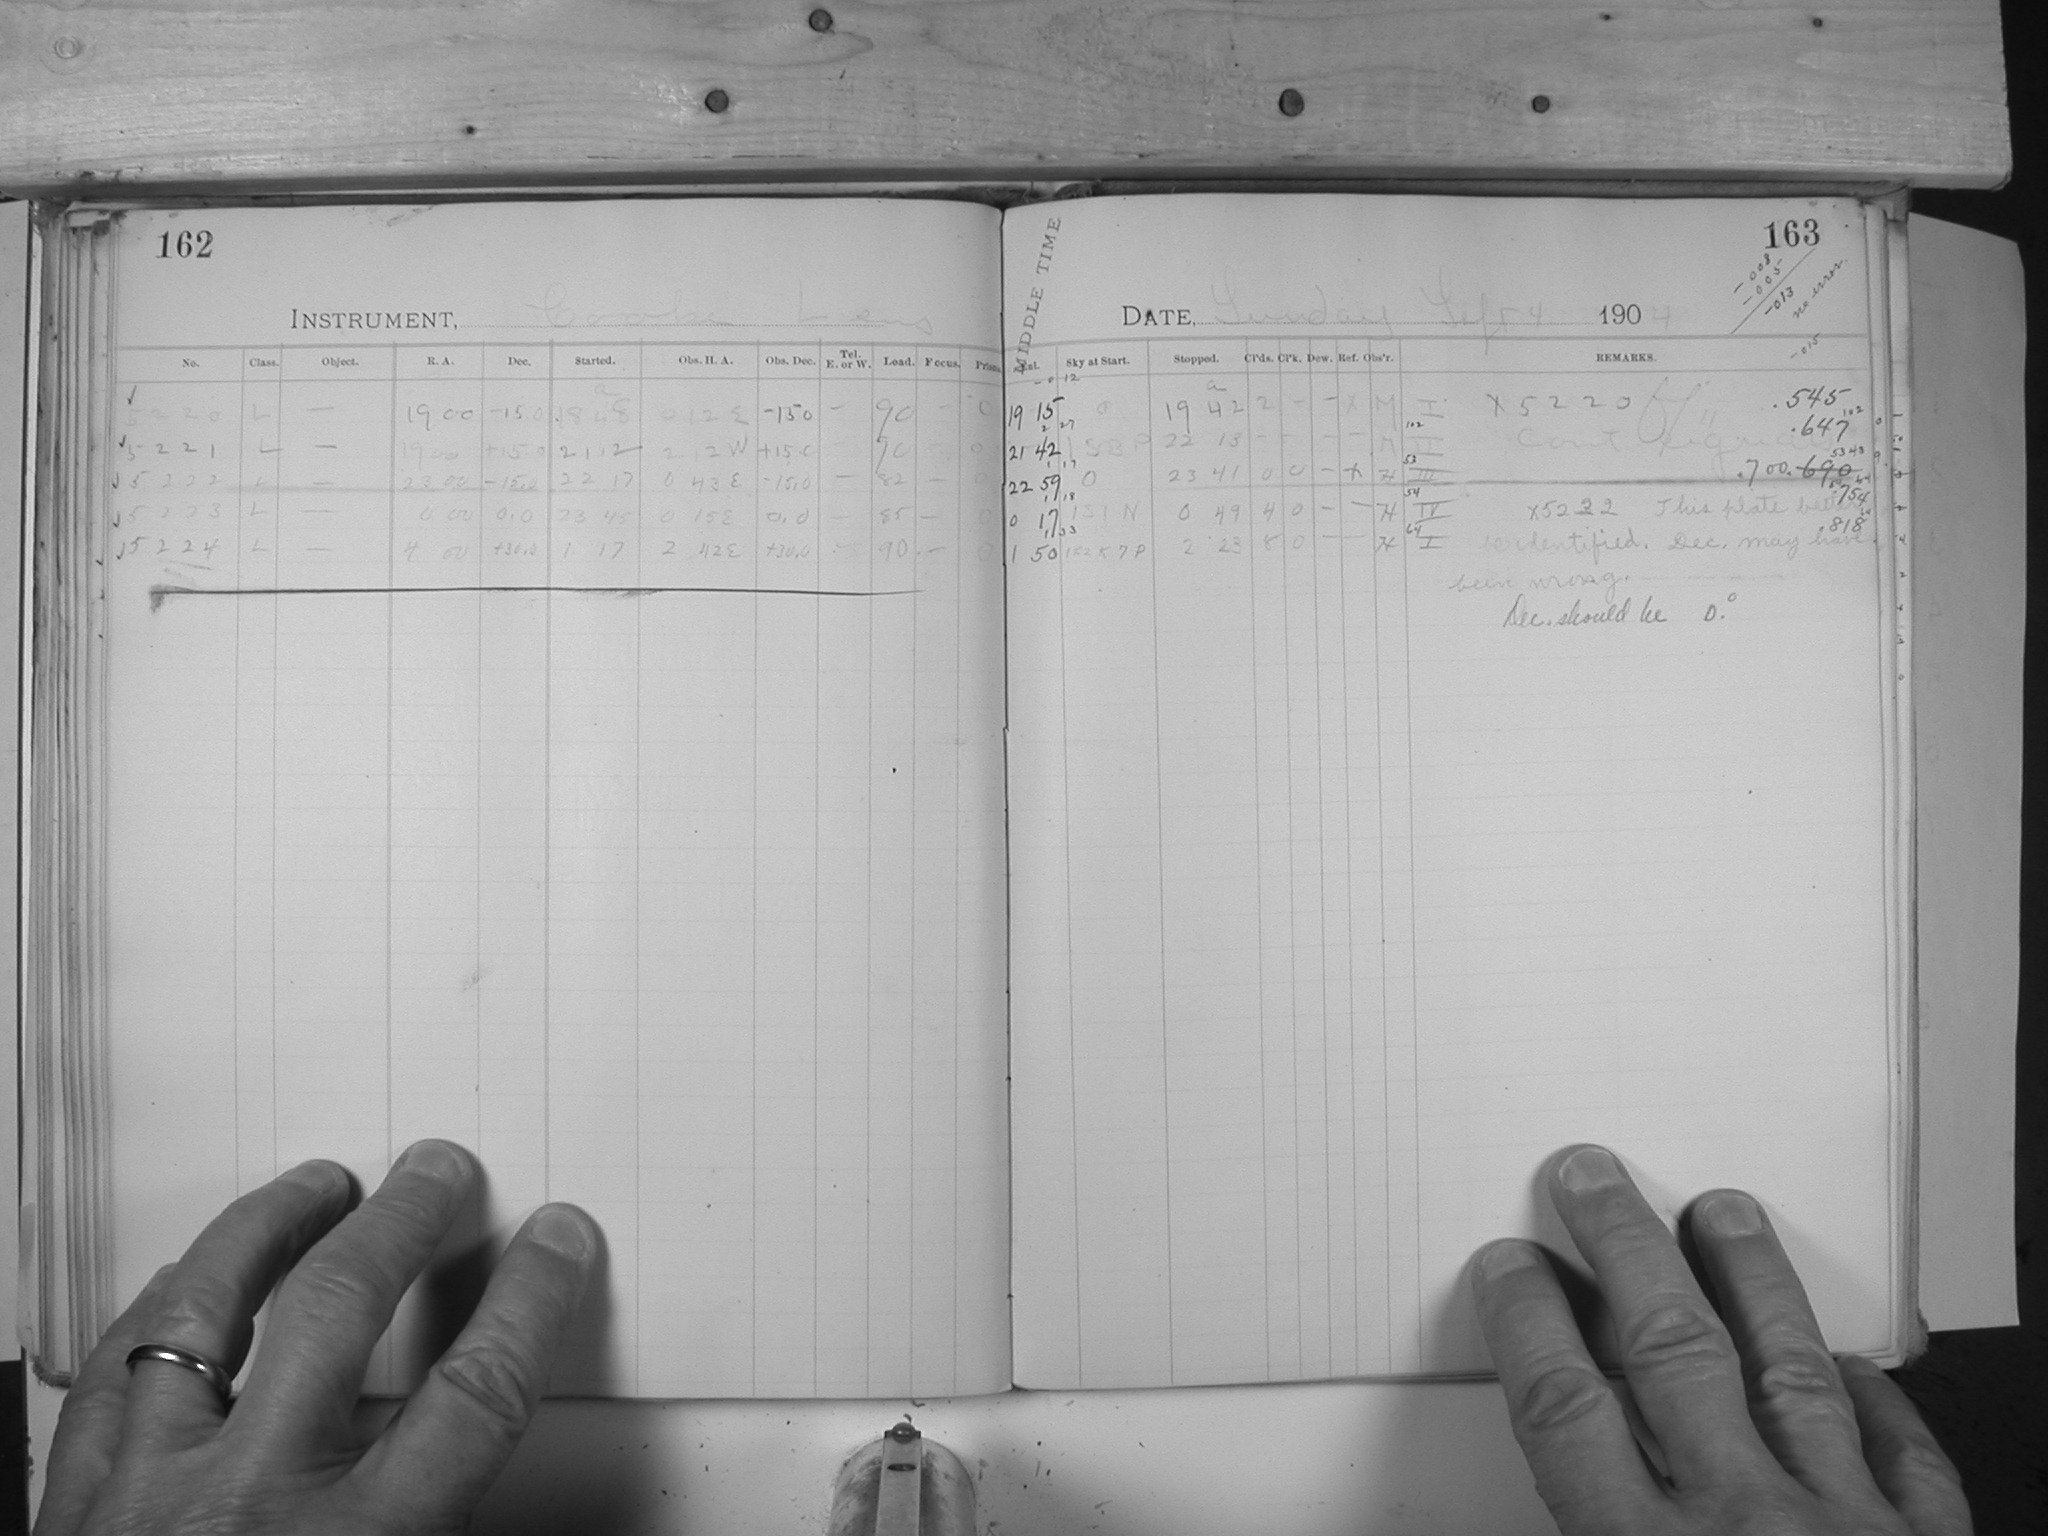 162
INSTRUMENT, Cooke Lens
No. Class. Object. R. A. Dec. Started. Obs. H. A. Obs. Dec. Tel. E. or W. Lead. Focus. Prism.
a
5220 L — 19 00 -15.0 18 48 0 12 E -15.0 — 90 - 0
5221 L — 19 00 +15.0 21 12 2 12 W +15.0 90 0
5222 L — 23 00 -15.0 22 17 0 43 E -15.0 — 82 — 0
5223 L — 0 00 0.0 23 45 0 15 E 0.0 — 85 — 0
5224 L — 4 00 +30.0 1 17 2 42 E +30.0 — 90 — 0
163
-008
-005
-013
no error.
MIDDLE TIME
DATE, Sunday Sept 4 1904
Sky at Start. Stopped. Cl'ds. Cl'k. Dew. Ref. Obs'r. REMARKS.
-015
-0 12
a
19 15 0 19 42 2 - - X M I X5220 .545
2 27
102
102
21 42 22 13 - - - - M II .647
1 17
53
53 43
22 59 0 23 41 0 0 - X H III .700 .690
1 18
54
0 17 151 N 0 49 4 0 - - H IV X5222 This plate .754
1 33
64
1 50 7 P 2 23 8 0 - - H I identified. Dec. may have .818
been wrong.
Dec. should be 0.°